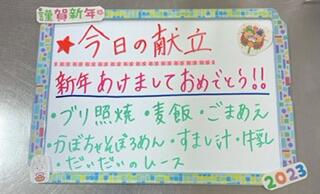 謹賀新年
★今日の献立
新年あけましておめでとう!!
・ブリ照焼・麦飯・ごまあえ
・かぼちゃそぼろあん・すまし汁・牛乳
・だいだいのムース
2023